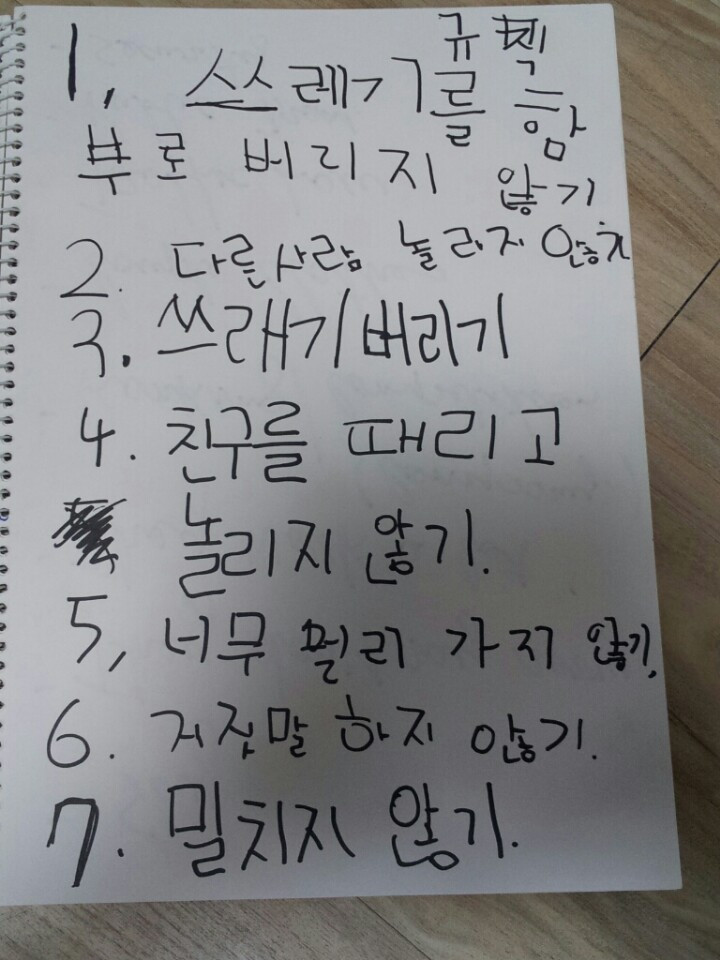 규칙
1. 쓰레기를 함
부로 버리지 않기
2. 다른사람 놀리지 않기
3. 쓰래기버리기
4. 친구를 때리고
놀리지 않기.
5, 너무 멀리 가지 않기.
6. 거짓말 하지 않기.
7. 밀치지 않기.